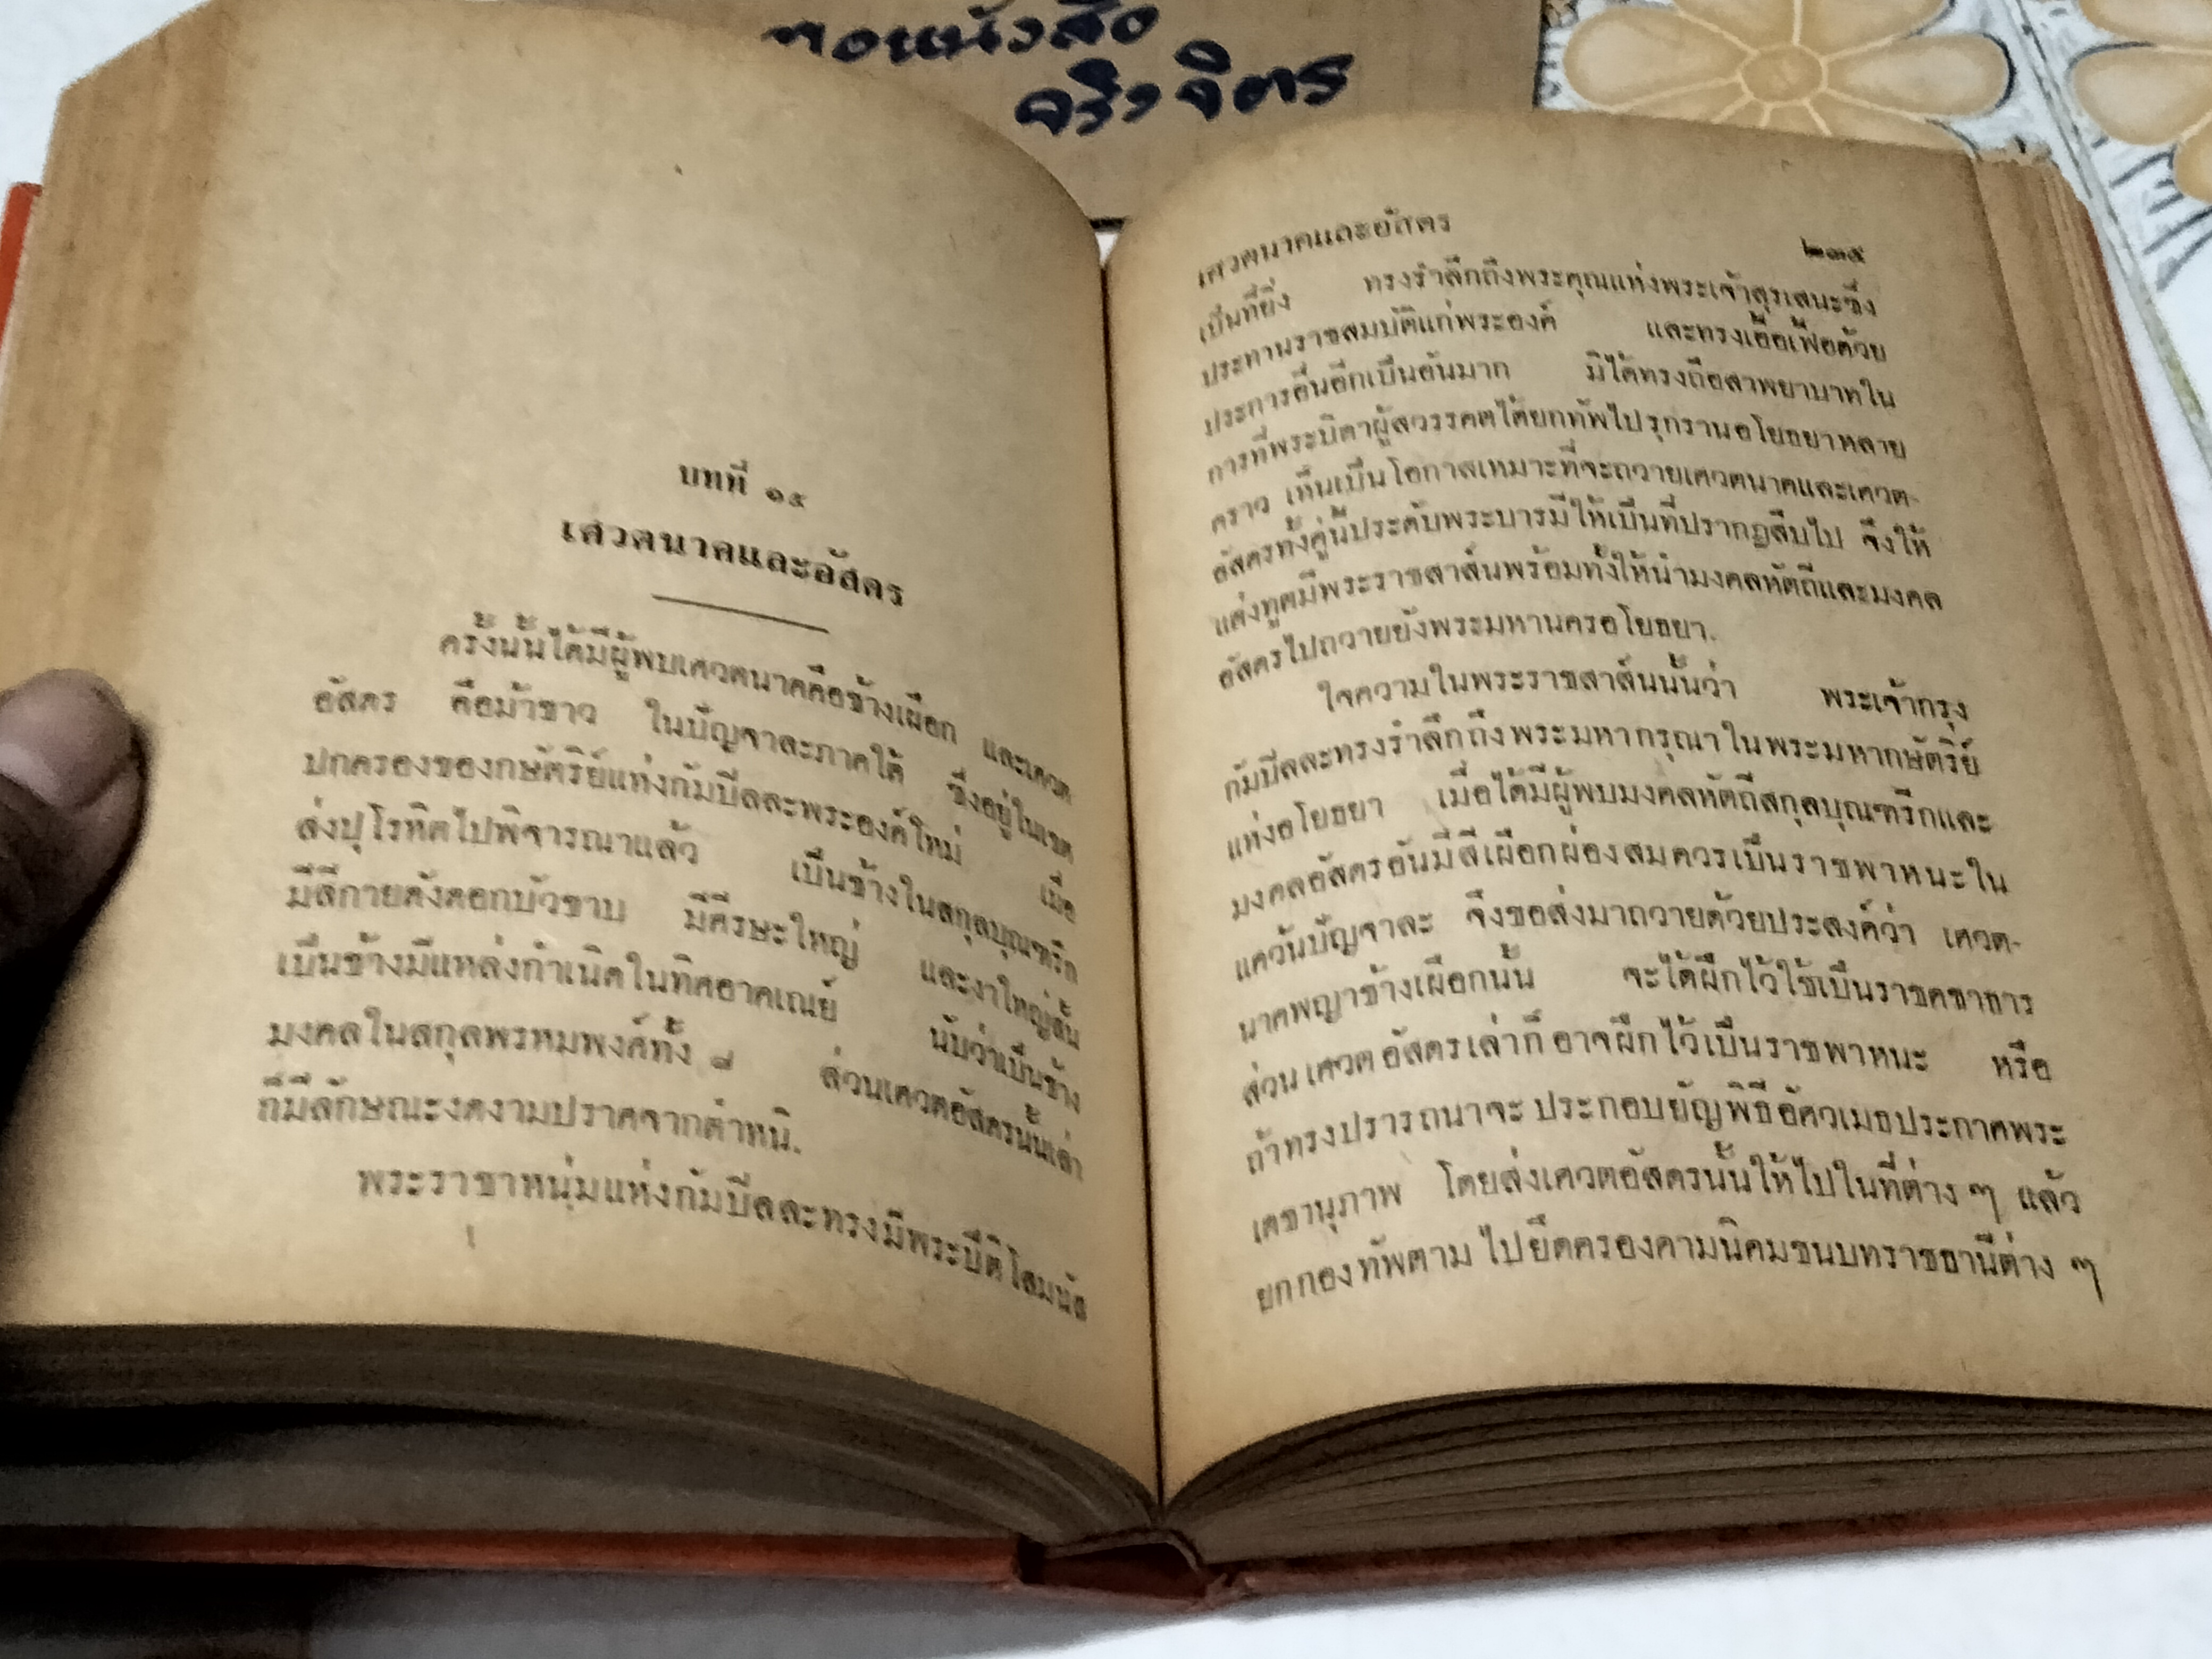 หอหนังสือ
จริงจิตร
บทที่ ๑๕
เศวตนาคและอัสดร
ครั้งนั้นได้มีผู้พบเศวตนาคคือช้างเผือก และเศวต
อัสดร คือม้าขาว ในปัญจาละภาคใต้ ซึ่งอยู่ในเขต
ปกครองของกษัตริย์แห่งกัมปิลละพระองค์ใหม่ เมื่อ
ส่งปุโรหิตไปพิจารณาแล้ว เป็นช้างในสกุลบุณฑริก
มีสีกายดังดอกบัวขาบ มีศีรษะใหญ่ และงาใหญ่สั้น
เป็นช้างมีแหล่งกำเนิดในทิศอาคเณย์ นับว่าเป็นช้าง
มงคลในสกุลพรหมพงศ์ทั้ง ๘ ส่วนเศวตอัสดรนั้นเล่า
ก็มีลักษณะงดงามปราศจากตำหนิ.
พระราชาหนุ่มแห่งกัมปิลละทรงมีพระปีติโสมนัส
เศวตนาคและอัสดร
๒๓๕
เป็นที่ยิ่ง ทรงรำลึกถึงพระคุณแห่งพระเจ้าสุรเสนะซึ่ง
ประทานราชสมบัติแก่พระองค์ และทรงเอื้อเฟื้อด้วย
ประการอื่นอีกเป็นอันมาก มิได้ทรงถือสาพยาบาทใน
การที่พระบิดาผู้สวรรคตได้ยกทัพไปรุกรานอโยธยาหลาย
คราว เห็นเป็นโอกาสเหมาะที่จะถวายเศวตนาคและเศวต-
อัสดรทั้งคู่นี้ประดับพระบารมีให้เป็นที่ปรากฏสืบไป จึงให้
แต่งทูตมีพระราชสาส์นพร้อมทั้งให้นำมงคลหัตถีและมงคล
อัสดรไปถวายยังพระมหานครอโยธยา.
ใจความในพระราชสาส์นนั้นว่า พระเจ้ากรุง
กัมปิลละทรงรำลึกถึงพระมหากรุณาในพระมหากษัตริย์
แห่งอโยธยา เมื่อได้มีผู้พบมงคลหัตถีสกุลบุณฑริกและ
มงคลอัสดรอันมีสีเผือกผ่องสมควรเป็นราชพาหนะใน
แคว้นปัญจาละ จึงขอส่งมาถวายด้วยประสงค์ว่า เศวต-
นาคพญาช้างเผือกนั้น จะได้ฝึกไว้ใช้เป็นราชคชาธาร
ส่วนเศวตอัสดรเล่าก็อาจฝึกไว้เป็นราชพาหนะ หรือ
ถ้าทรงปรารถนาจะประกอบยัญพิธีอัศวเมธประกาศพระ
เดชานุภาพ โดยส่งเศวตอัสดรนั้นให้ไปในที่ต่าง ๆ แล้ว
ยกกองทัพตาม ไปยึดครองคามนิคมชนบทราชธานีต่าง ๆ